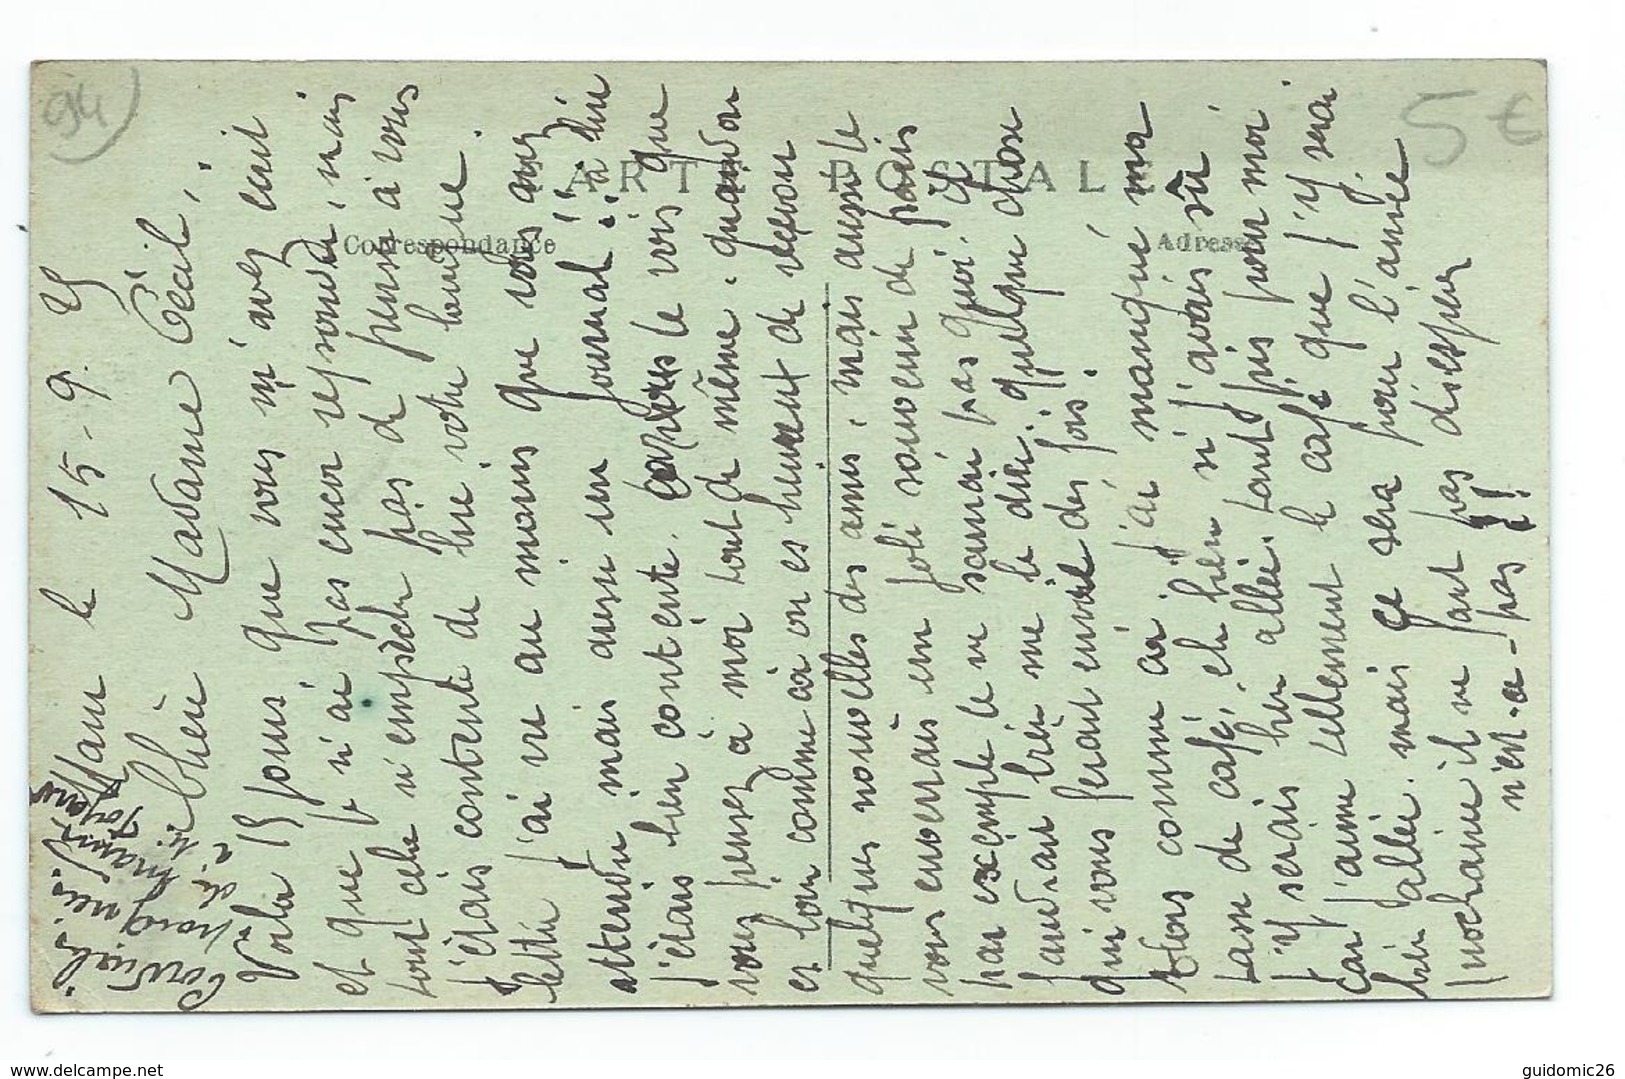 94)
5 €
CARTE POSTALE
Correspondance
Adresse
le 15-9. 25
Chère Madame Cécil,
Voila 15 jours que vous m'avez écrit
et que je n'ai pas encor repondu, mais
tout cela n'empèche pas de pensé à vous
j'étais contente de lire votre longue
lettre j'ai vu au moins que vous avez
attendu mais aussi un journal à lire
j'étais bien contente. le vois que
vous pensez à moi tout de même. quand on
es loin comme ça on es heureut de recevoir
quelques nouvelles des amis, mais aussi le
vous enverrais un joli souvenir de Paris
par exemple le ne saurai pas quoi, il
faudrai bien me le dire, quelque chose
qui vous ferait envie des fois.
Alors comme ça j'ai manqué ma
tasse de café, eh bien si j'avais su
j'y serais bien allée. tant pis pour moi
car j'aime tellement le café que j'y serai
bien allée. mais ce sera pour l'année
prochaine il ne faut pas désespérer
n'est-ce-pas !!
guidomic26
Free Delcampe.net